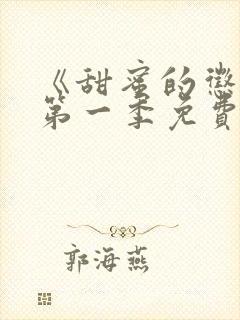 《甜蜜的懲
第一季免費
郭海燕